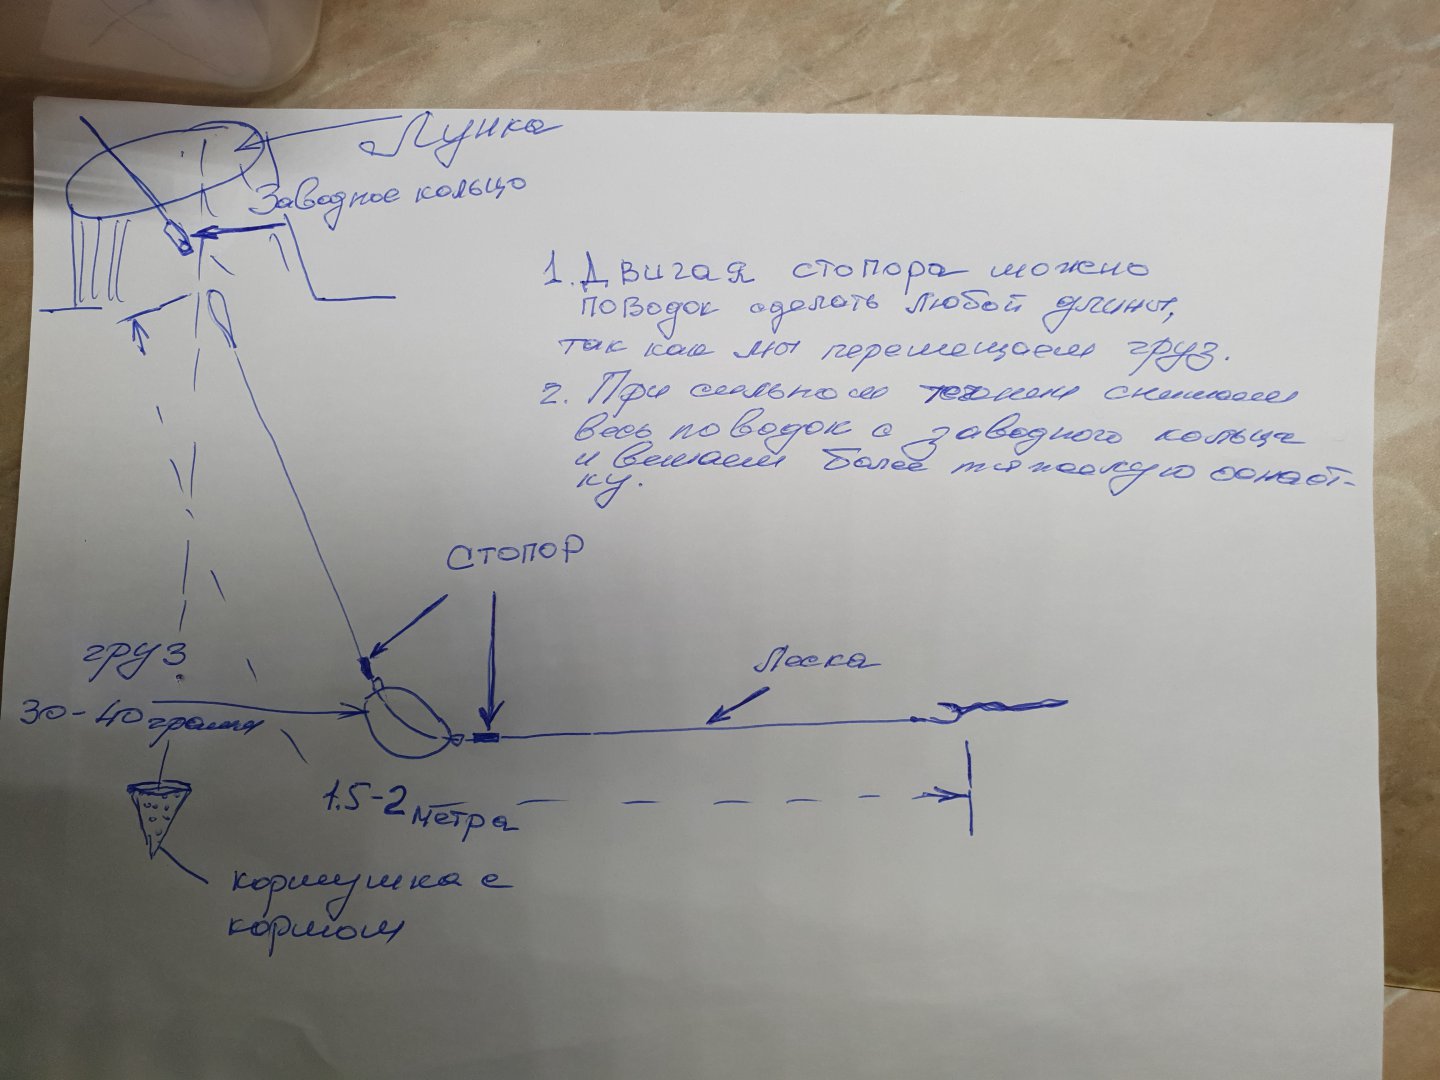 Лунка
Заводное кольцо
1. Двигая стопора можно
поводок сделать любой длины,
так как мы перемещаем груз.
2. При сильном течении снимаем
весь поводок с заводного кольца
и вешаем более тяжелую оснаст-
ку.
Стопор
груз
30-40 грамм
Леска
1.5-2 метра
кормушка с
кормом